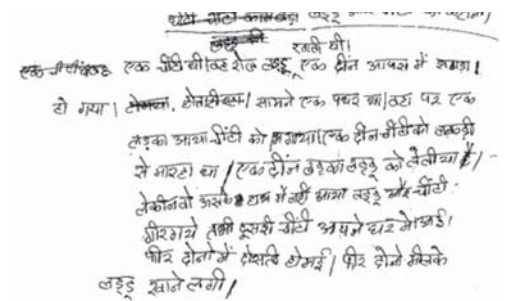 लड्डू
लड्डू की
खाती थी।
एक चींटी थी। वह रोज लड्डू एक दीन आपस में झगडा।
हो गया। सामने एक पथर था। वहा पर एक
लडका आया चींटी को भगाया। एक दीन चींटी को लकडी
से मारहा था। एक दींन लडका लड्डू को लेलीया है।
लेकीन वो उसके हाथ में नही आया लड्डू और चींटी
गीरगये तभी दूसरी चींटी आपने घर मे आई।
फीर दोनो में दोसती होगई। फीर दोनो मीलके
लड्डू खाने लगी।